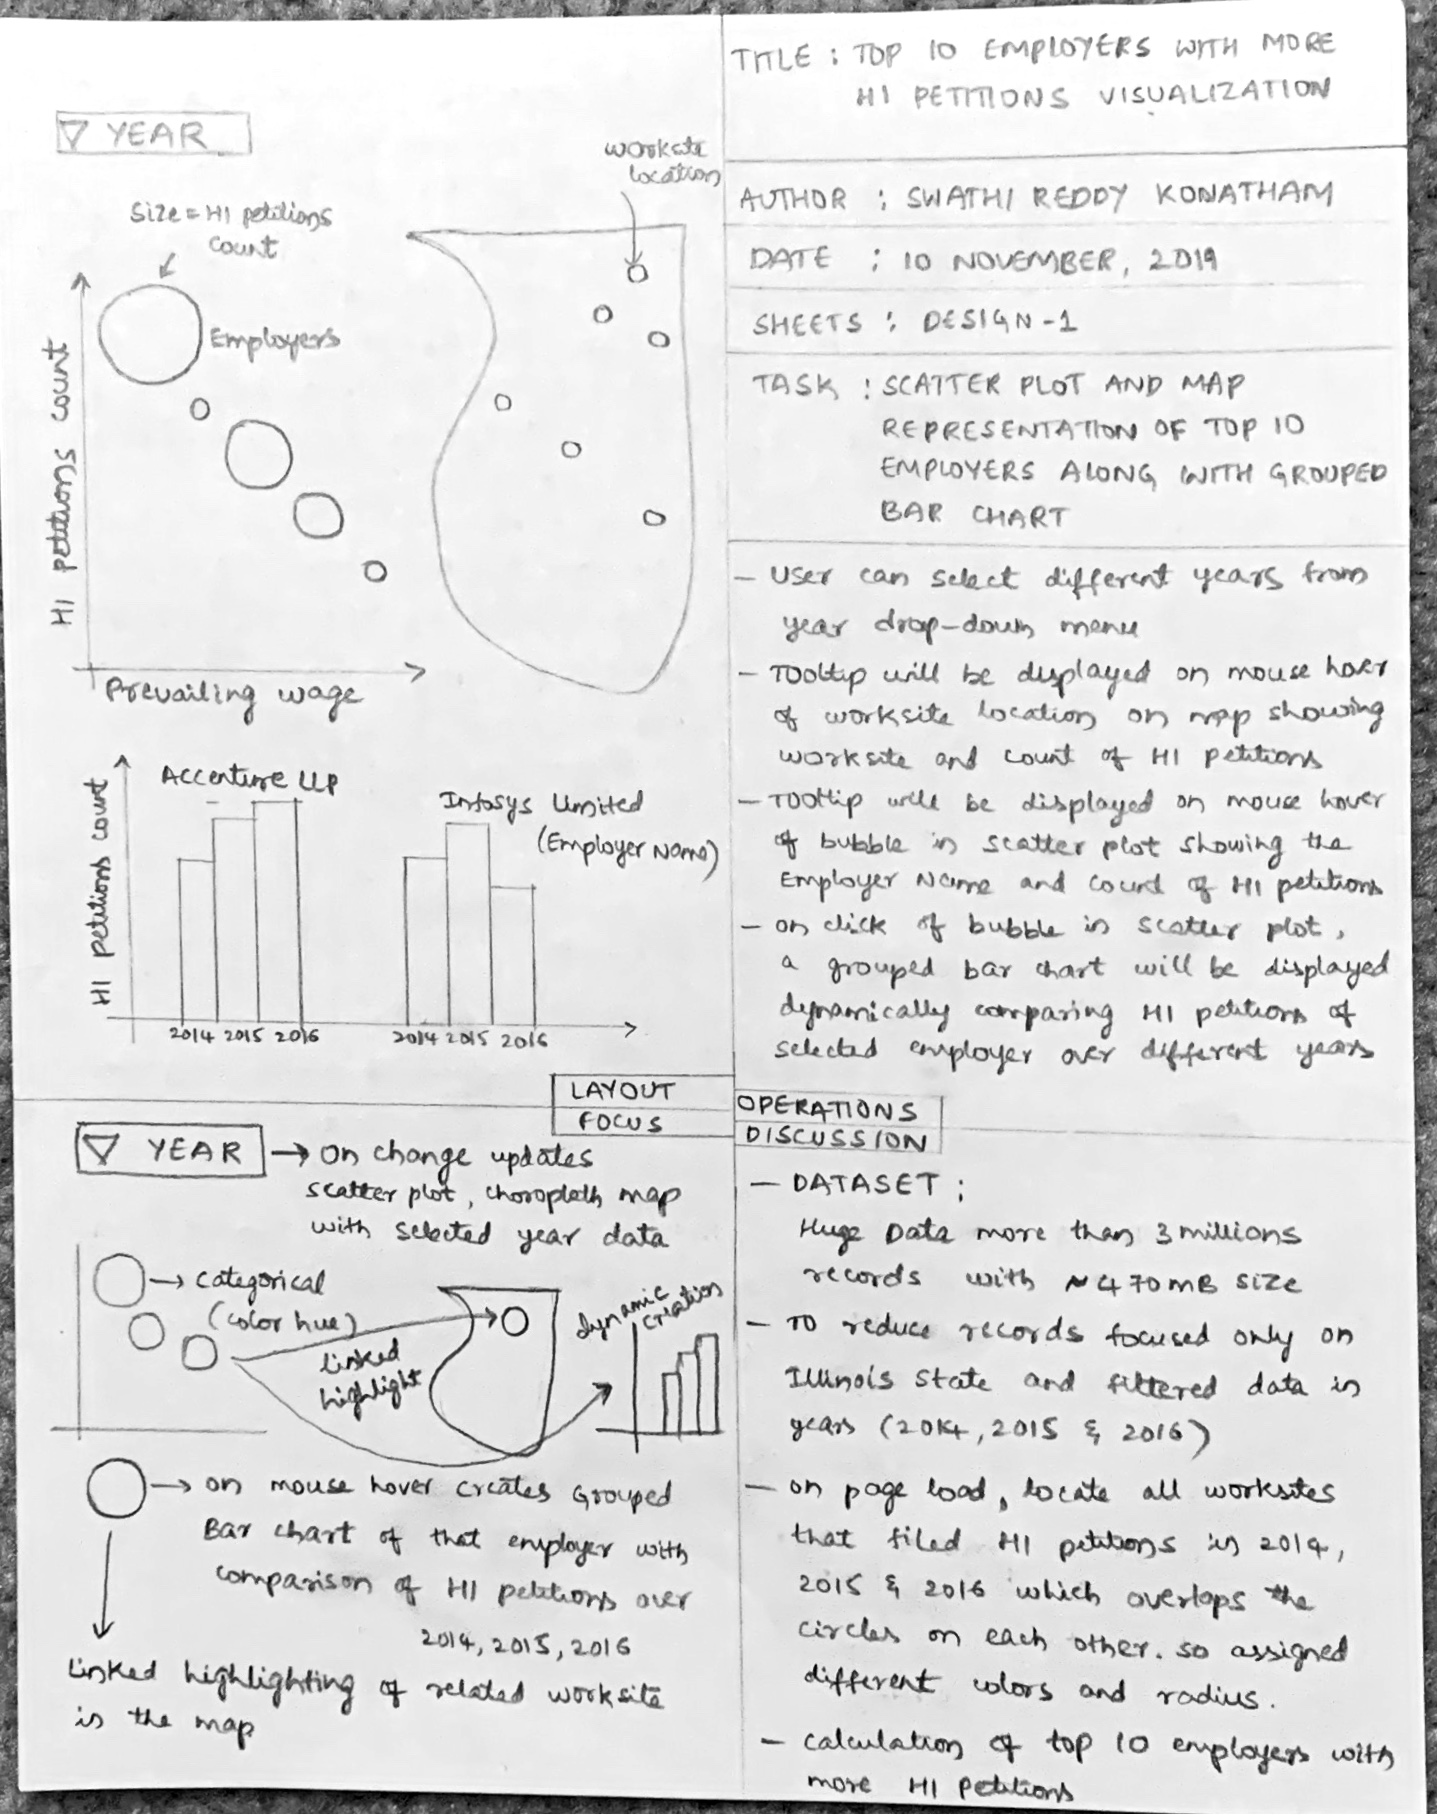 ▽ YEAR
Size = H1 petitions
count
Employers
H1 petitions count
Prevailing wage
worksite
location
H1 petitions count
Accenture LLP
Infosys Limited
(Employer Name)
2014 2015 2016
2014 2015 2016
LAYOUT
FOCUS
TITLE : TOP 10 EMPLOYERS WITH MORE
H1 PETITIONS VISUALIZATION
AUTHOR : SWATHI REDDY KONATHAM
DATE : 10 NOVEMBER, 2019
SHEETS : DESIGN-1
TASK : SCATTER PLOT AND MAP
REPRESENTATION OF TOP 10
EMPLOYERS ALONG WITH GROUPED
BAR CHART
- User can select different years from
year drop-down menu
- Tooltip will be displayed on mouse hover
of worksite location on map showing
worksite and count of H1 petitions
- Tooltip will be displayed on mouse hover
of bubble in scatter plot showing the
Employer Name and count of H1 petitions
- on click of bubble in scatter plot,
a grouped bar chart will be displayed
dynamically comparing H1 petitions of
selected employer over different years
OPERATIONS
DISCUSSION
▽ YEAR → On change updates
scatter plot, choropleth map
with selected year data
→ categorical
(color hue)
linked
highlight
dynamic
creation
→ on mouse hover creates Grouped
Bar chart of that employer with
comparison of H1 petitions over
2014, 2015, 2016
Linked highlighting of related worksite
in the map
- DATASET :
Huge Data more than 3 millions
records with ~470MB size
- To reduce records focused only on
Illinois State and filtered data in
years (2014, 2015 & 2016)
- on page load, locate all worksites
that filed H1 petitions in 2014,
2015 & 2016 which overlaps the
circles on each other. so assigned
different colors and radius.
- calculation of top 10 employers with
more H1 Petitions